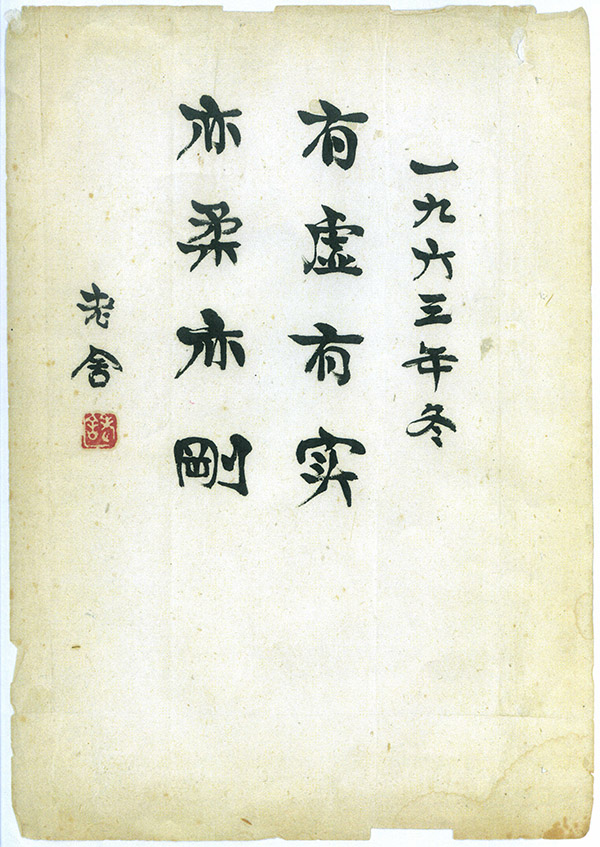 一九六三年冬
有虚有实
亦柔亦剛
老舍
老舍